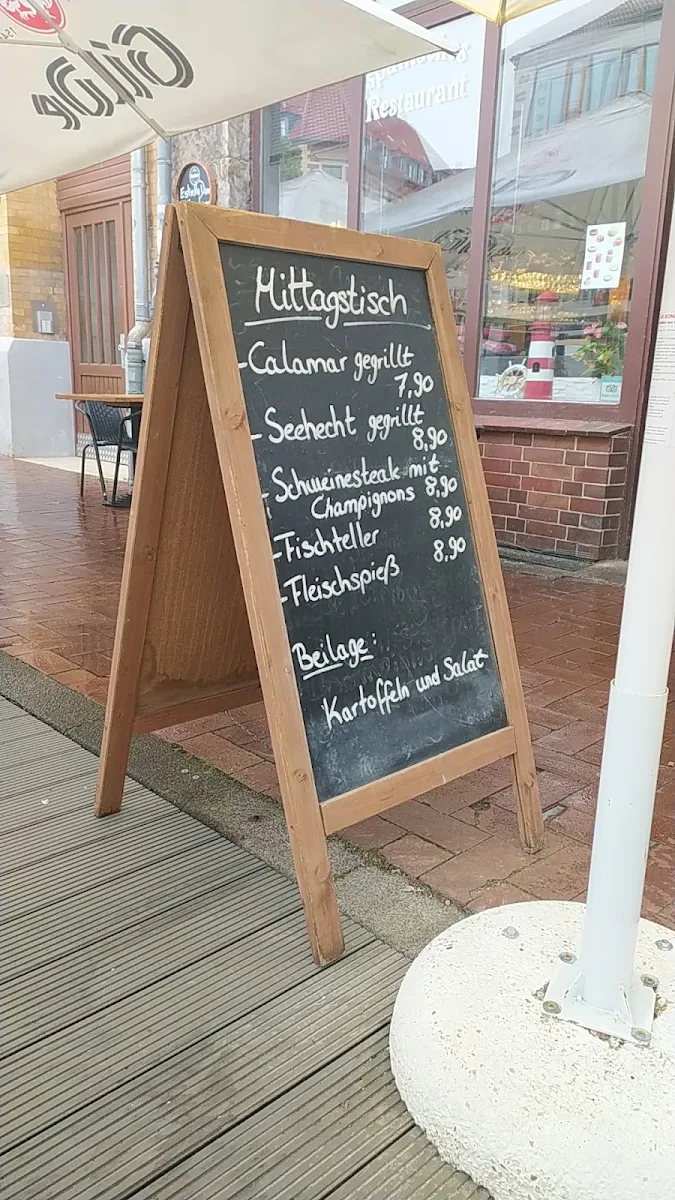 spanisches
Restaurant
Mittagstisch
-Calamar gegrillt
7,90
-Seehecht gegrillt
8,90
-Schweinesteak mit
Champignons 8,90
-Fischteller 8,90
-Fleischspieß 8,90
Beilage:
Kartoffeln und Salat